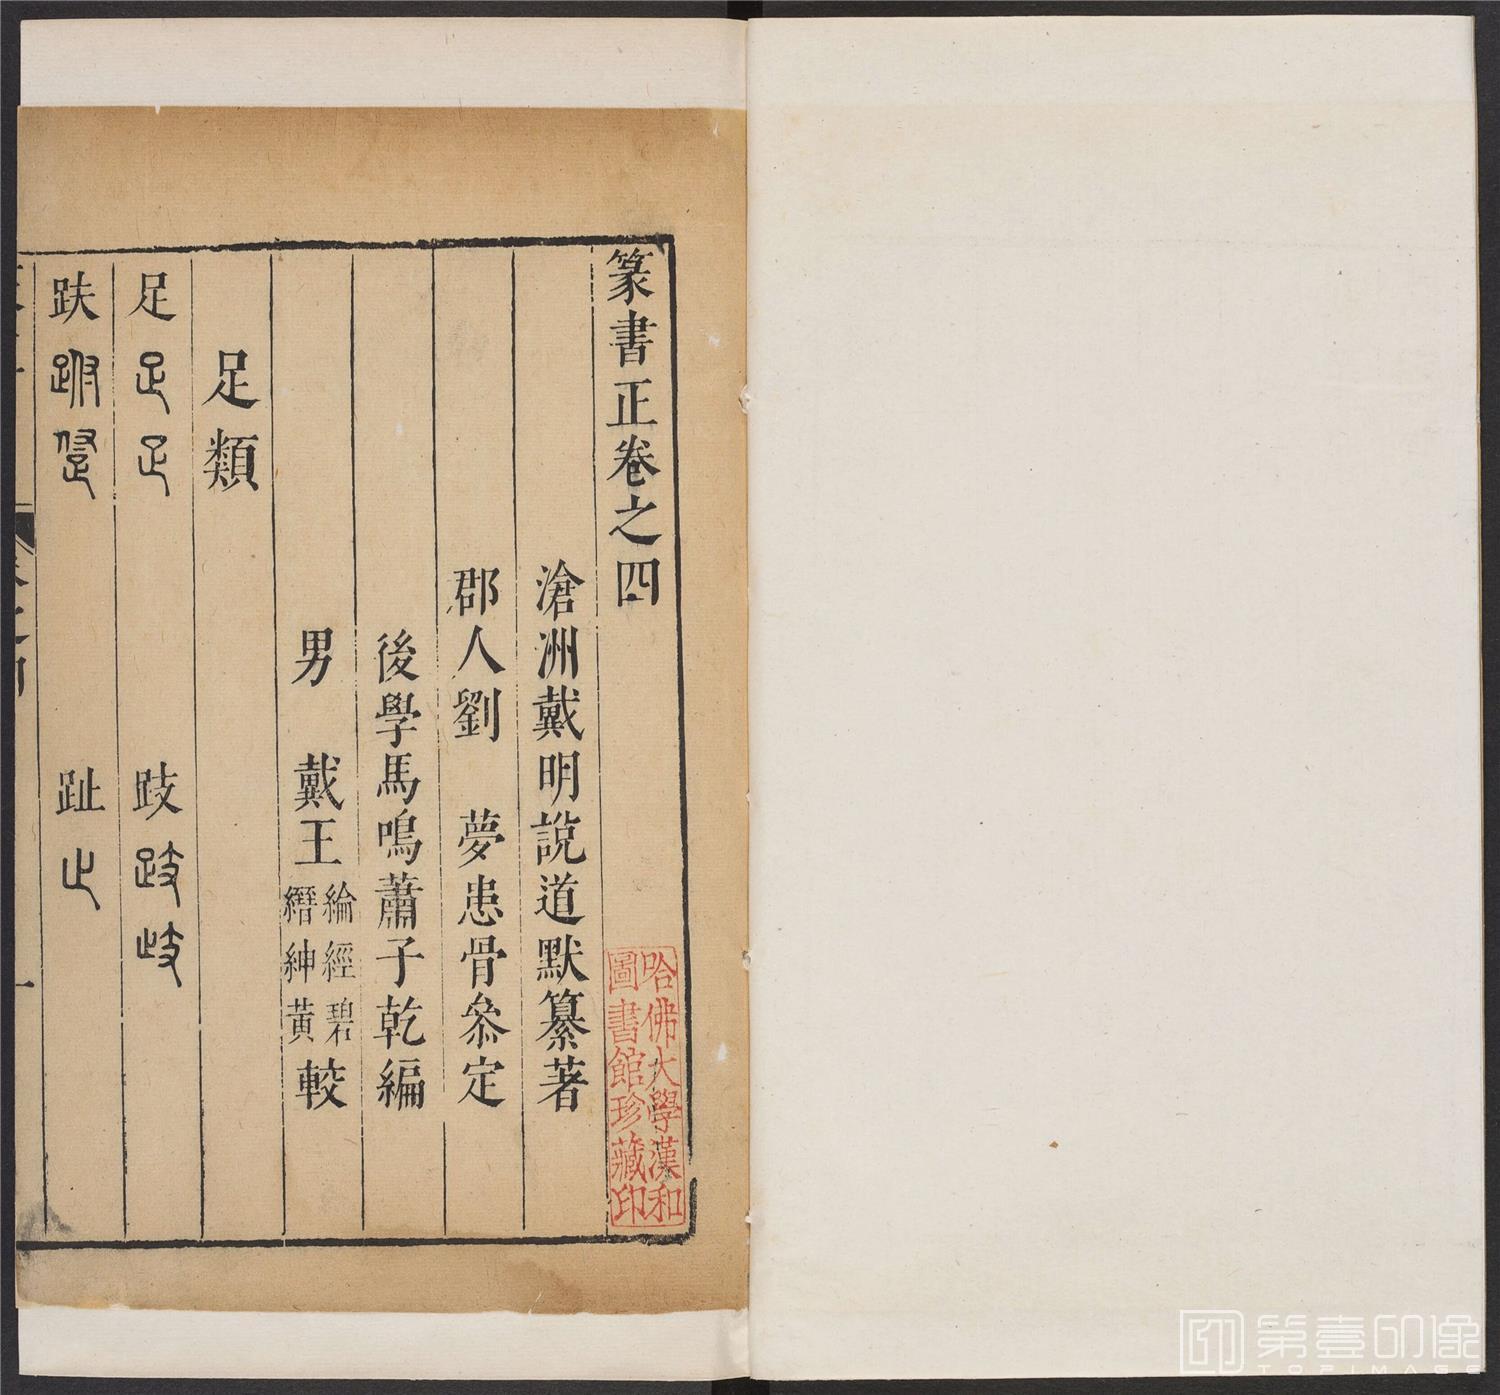 篆書正卷之四
滄洲戴明說道默纂著
郡人劉　夢患骨叅定
後學馬鳴蕭子乾編
男　戴王綸經碧縉紳黃較
足類
足　足　足　跂　跂　歧
趺　跗　趾　止
哈佛大學漢和
圖書館珍藏印
第壹印像
TOPIMAGE